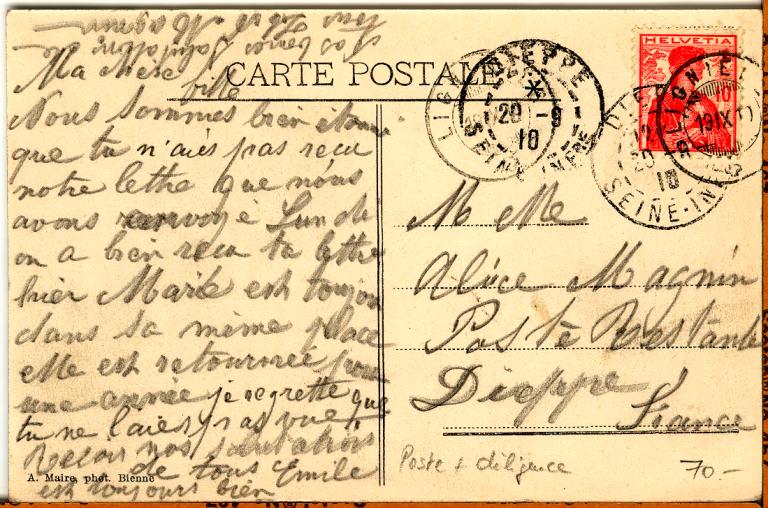 CARTE POSTALE
Ma chère
Nous sommes bien
que tu n'aies pas recu
notre lettre que nous
avons envoyé Lundi
on a bien recu ta lettre
hier Marie est toujou
dans sa même place
elle est retournée pour
une année je regrette que
tu ne l'aies pas vue
Recois nos salutations
de tous Emile
est toujours bien
A. Maire, phot. Bienne
HELVETIA
10
DIEPPE
20 -9
10
SEINE-INFRE
LIG
DIE
20 -9
10
SEINE-INF
LIGNIÈ
19 IX 10
M elle
Alice Magnin
Poste Restante
Dieppe
France
Poste + diligence
70.-